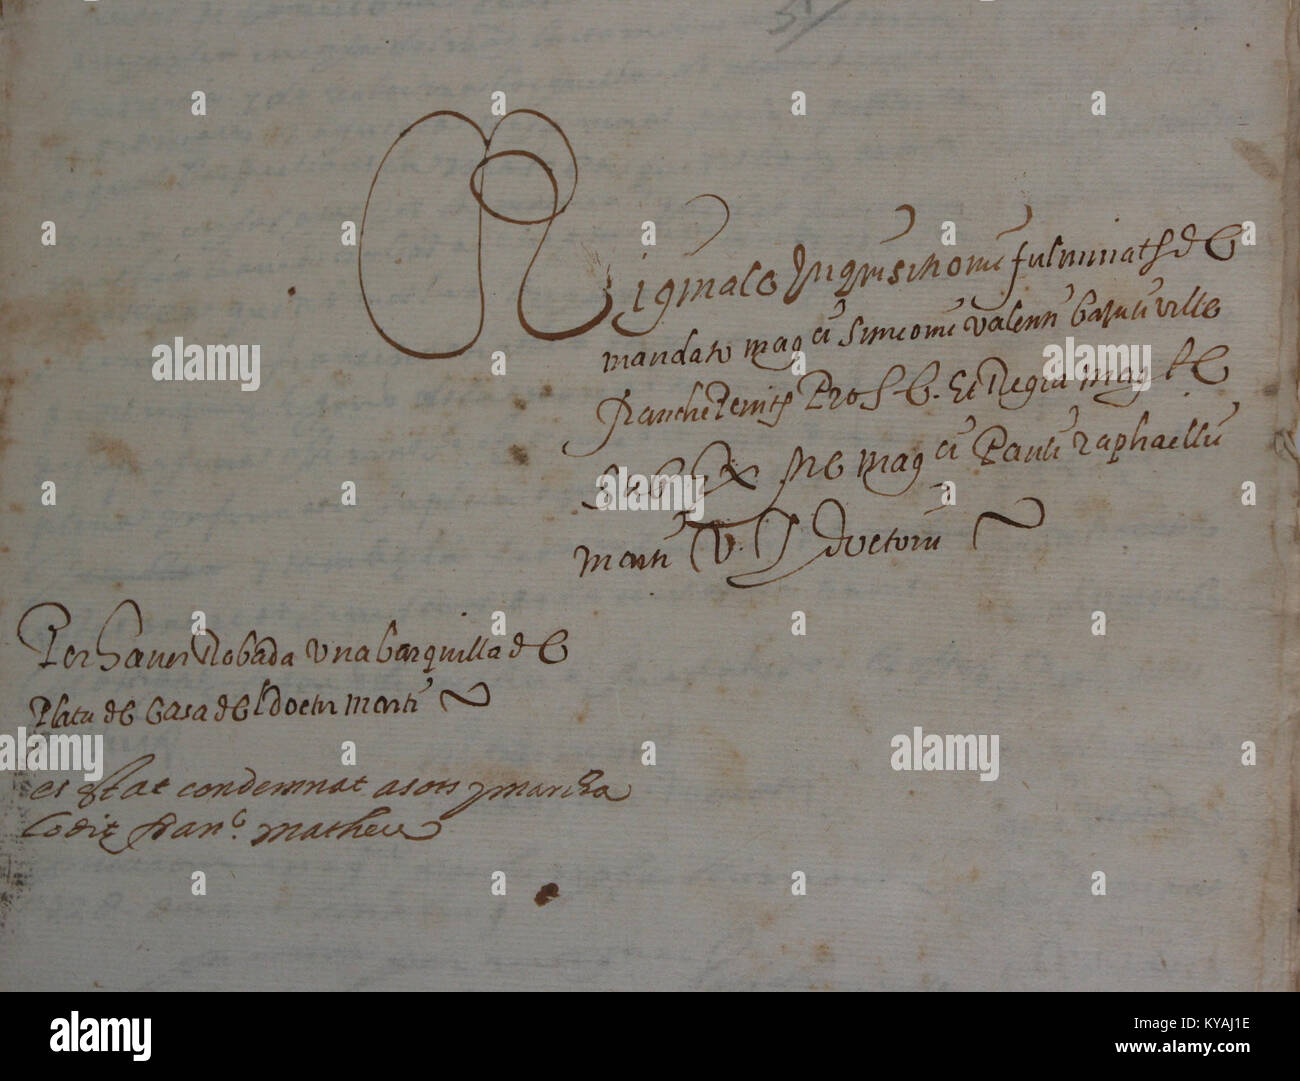 Originale Inquisitionũ fulminatȩ de
mandato magci Simeonis Valentí bajuli ville
franche Penitȩ Pro S. C. Et Regia Magte
sub Ex ne magci Pauli raphaellis
Martí V. J. doctoris
Per haver Robada una barquilla de
Plata de Casa del doctor Martí
es stat condemnat asots y marcha
lo dit Franco. Matheu
alamy
a
Image ID: KYAJ1E
www.alamy.com